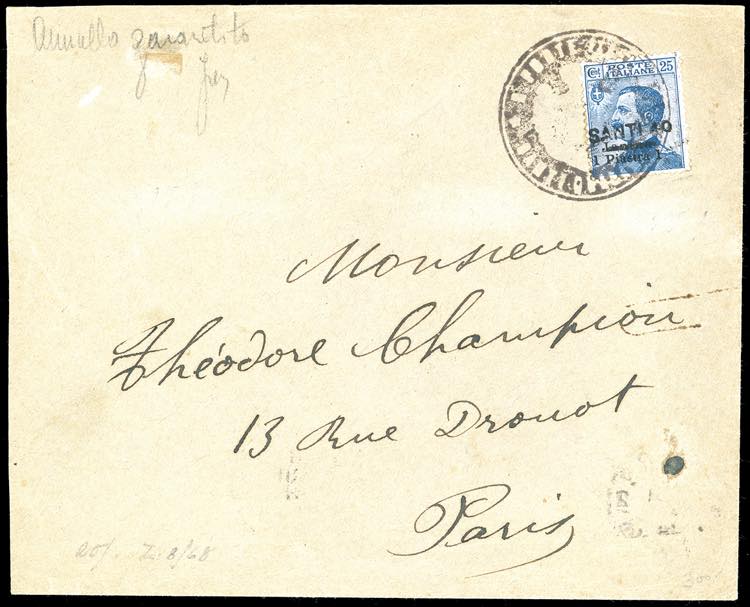 Annullo garantito
Cent. POSTE ITALIANE 25
SANTI 40
1 Piastra 1
Monsieur
Théodore Champion
13 Rue Drouot
Paris